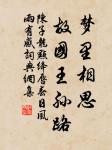 梦里相思
故国王孙路
陈子龙点绛唇春日风
雨有感词典网集